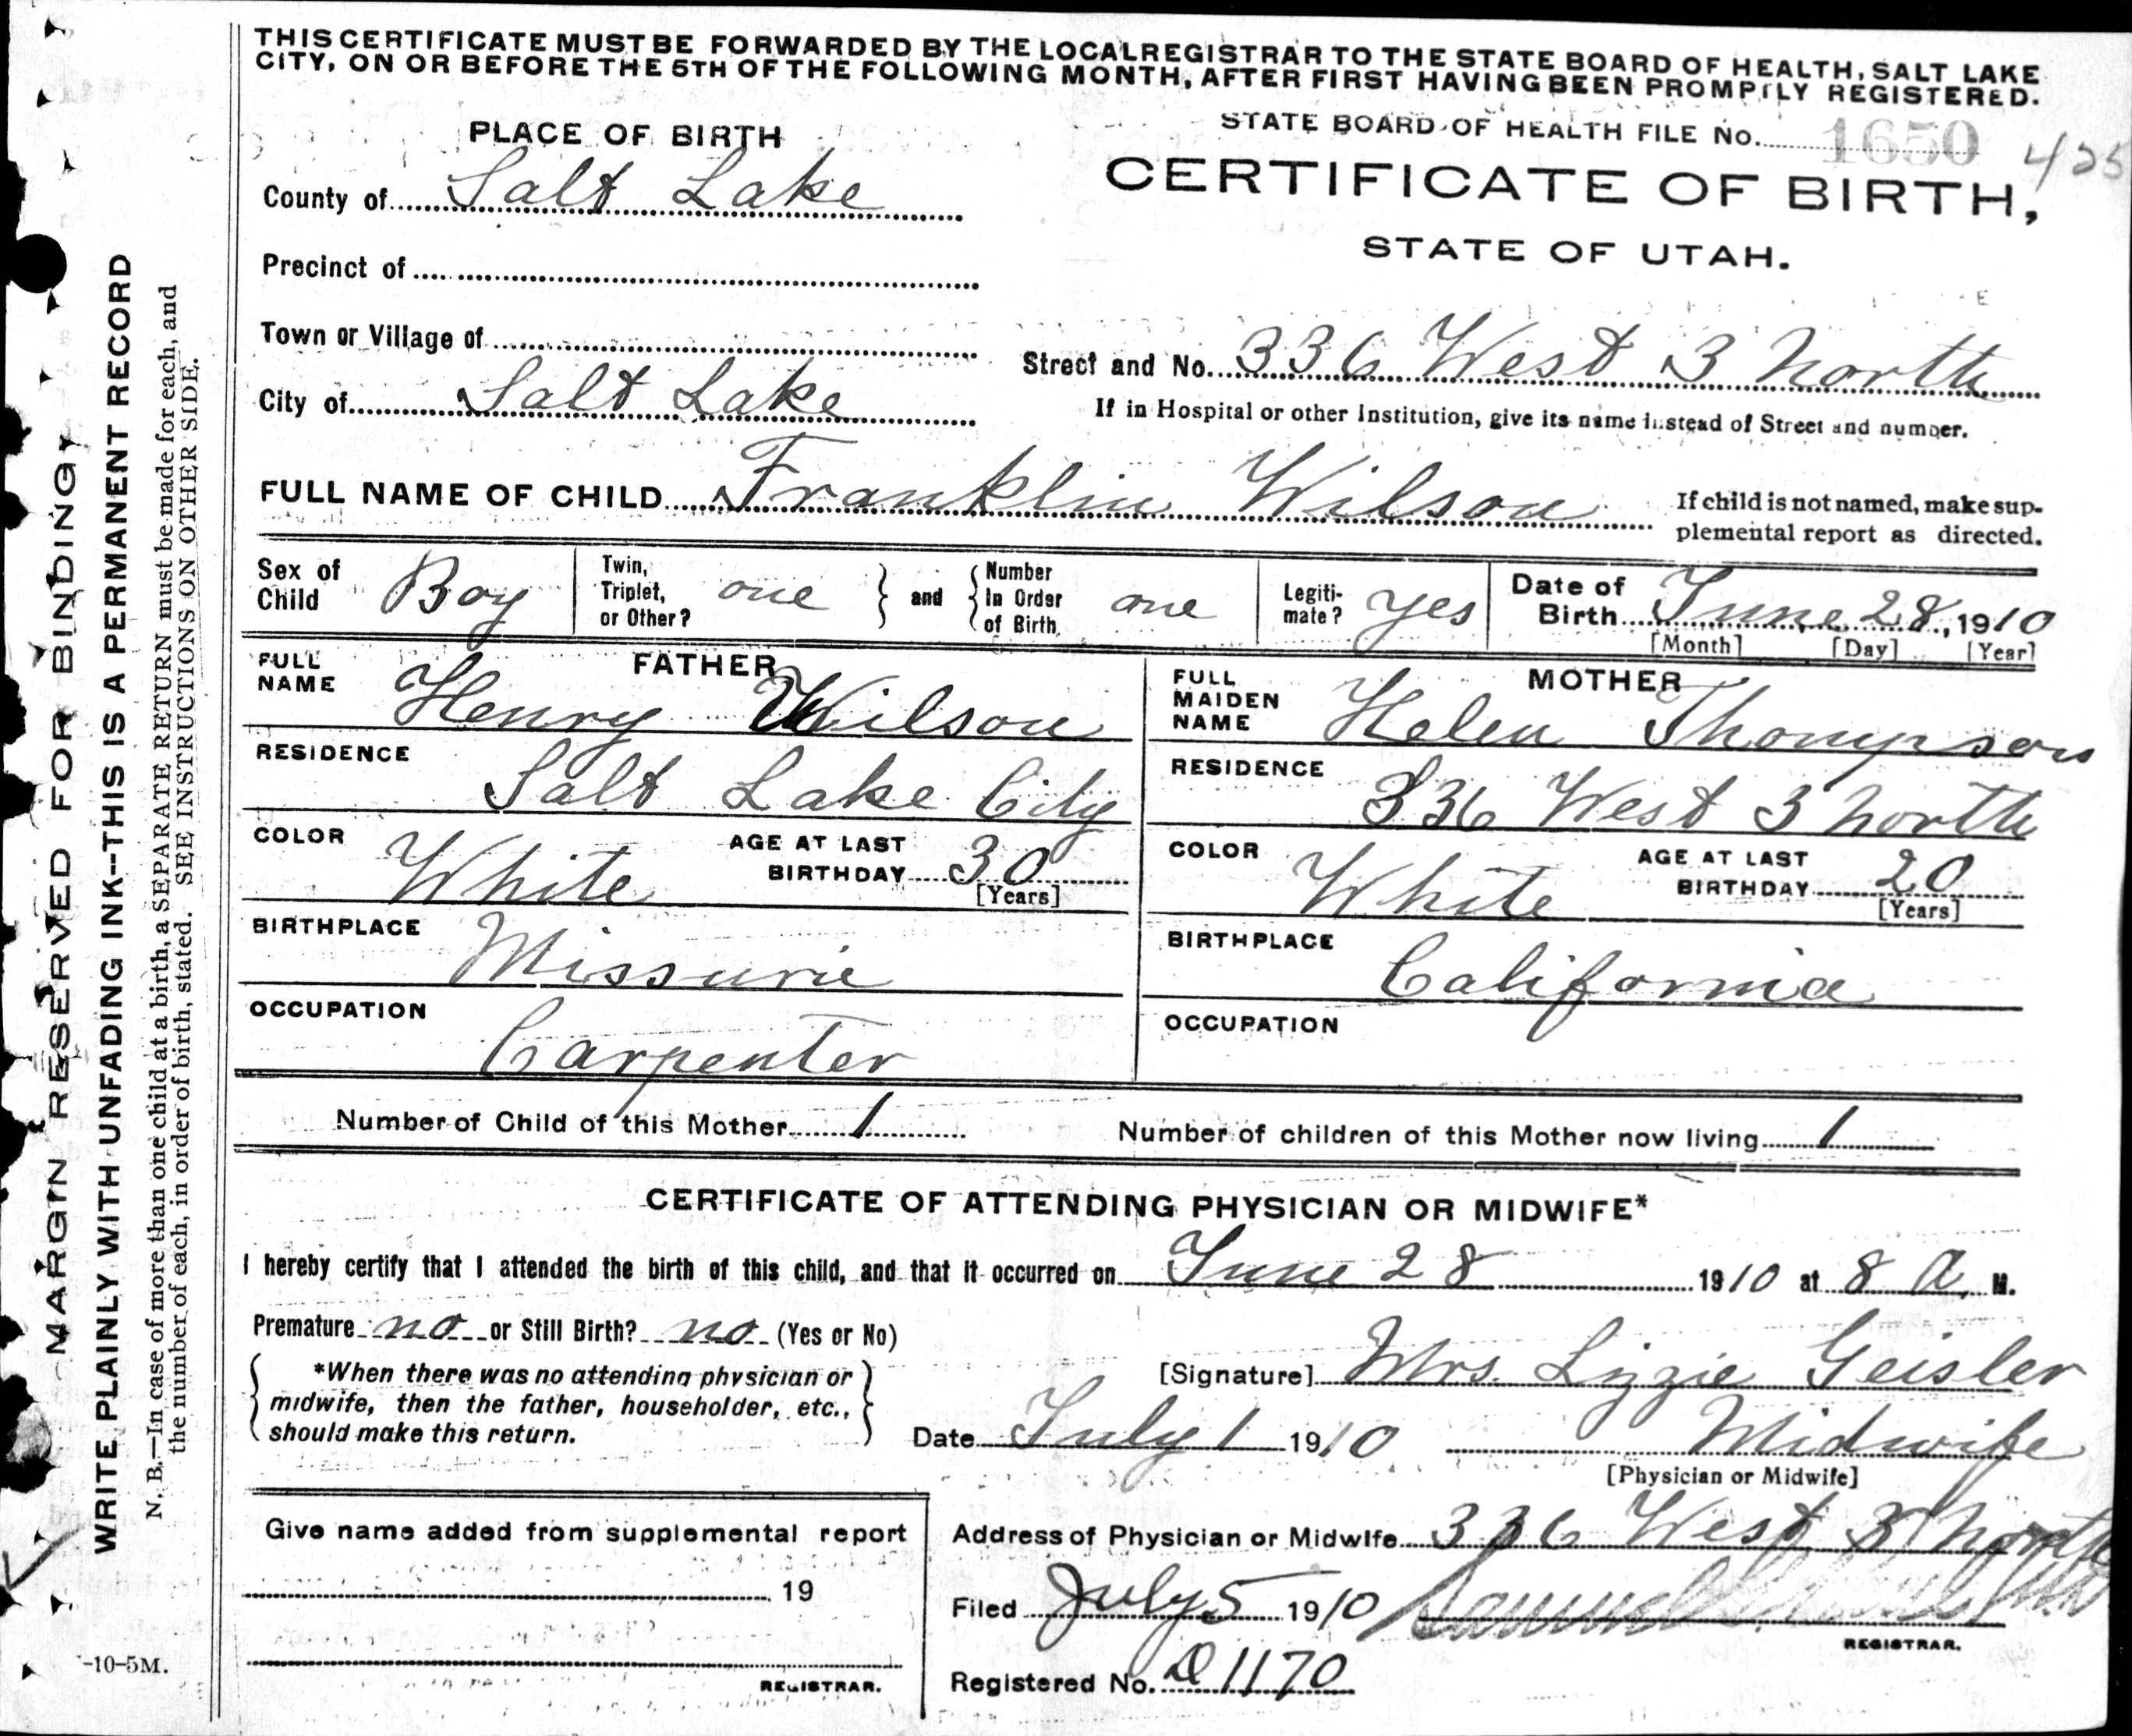 THIS CERTIFICATE MUST BE FORWARDED BY THE LOCAL REGISTRAR TO THE STATE BOARD OF HEALTH, SALT LAKE
CITY, ON OR BEFORE THE 5TH OF THE FOLLOWING MONTH, AFTER FIRST HAVING BEEN PROMPTLY REGISTERED.
PLACE OF BIRTH
STATE BOARD OF HEALTH FILE No. 1650 425
County of Salt Lake
CERTIFICATE OF BIRTH,
STATE OF UTAH.
Precinct of
Town or Village of
Street and No. 336 West 3 North
City of Salt Lake
If in Hospital or other Institution, give its name instead of Street and number.
FULL NAME OF CHILD Franklin Wilson
If child is not named, make sup-
plemental report as directed.
Sex of Child Boy
Twin, Triplet, or Other? one
and
Number In Order of Birth one
Legiti-mate? yes
Date of Birth June 28, 1910
[Month] [Day] [Year]
FATHER
FULL NAME Henry Wilson
RESIDENCE
Salt Lake City
COLOR White
AGE AT LAST BIRTHDAY 30
[Years]
BIRTHPLACE
Missurie
OCCUPATION
Carpenter
MOTHER
FULL MAIDEN NAME Helen Thompson
RESIDENCE
336 West 3 North
COLOR White
AGE AT LAST BIRTHDAY 20
[Years]
BIRTHPLACE
California
OCCUPATION
Number of Child of this Mother 1
Number of children of this Mother now living 1
CERTIFICATE OF ATTENDING PHYSICIAN OR MIDWIFE*
I hereby certify that I attended the birth of this child, and that it occurred on June 28 1910 at 8 a. M.
Premature no or Still Birth? no (Yes or No)
*When there was no attending physician or
midwife, then the father, householder, etc.,
should make this return.
[Signature] Mrs. Lizzie Geisler
Date July 1 1910 Midwife
[Physician or Midwife]
Give name added from supplemental report
19
REGISTRAR.
Address of Physician or Midwife 336 West 3 North
Filed July 5 1910 Samuel
REGISTRAR.
Registered No. D 1170
MARGIN RESERVED FOR BINDING
WRITE PLAINLY WITH UNFADING INK--THIS IS A PERMANENT RECORD
N. B.—In case of more than one child at a birth, a SEPARATE RETURN must be made for each, and
the number of each, in order of birth, stated. SEE INSTRUCTIONS ON OTHER SIDE.
-10-5M.